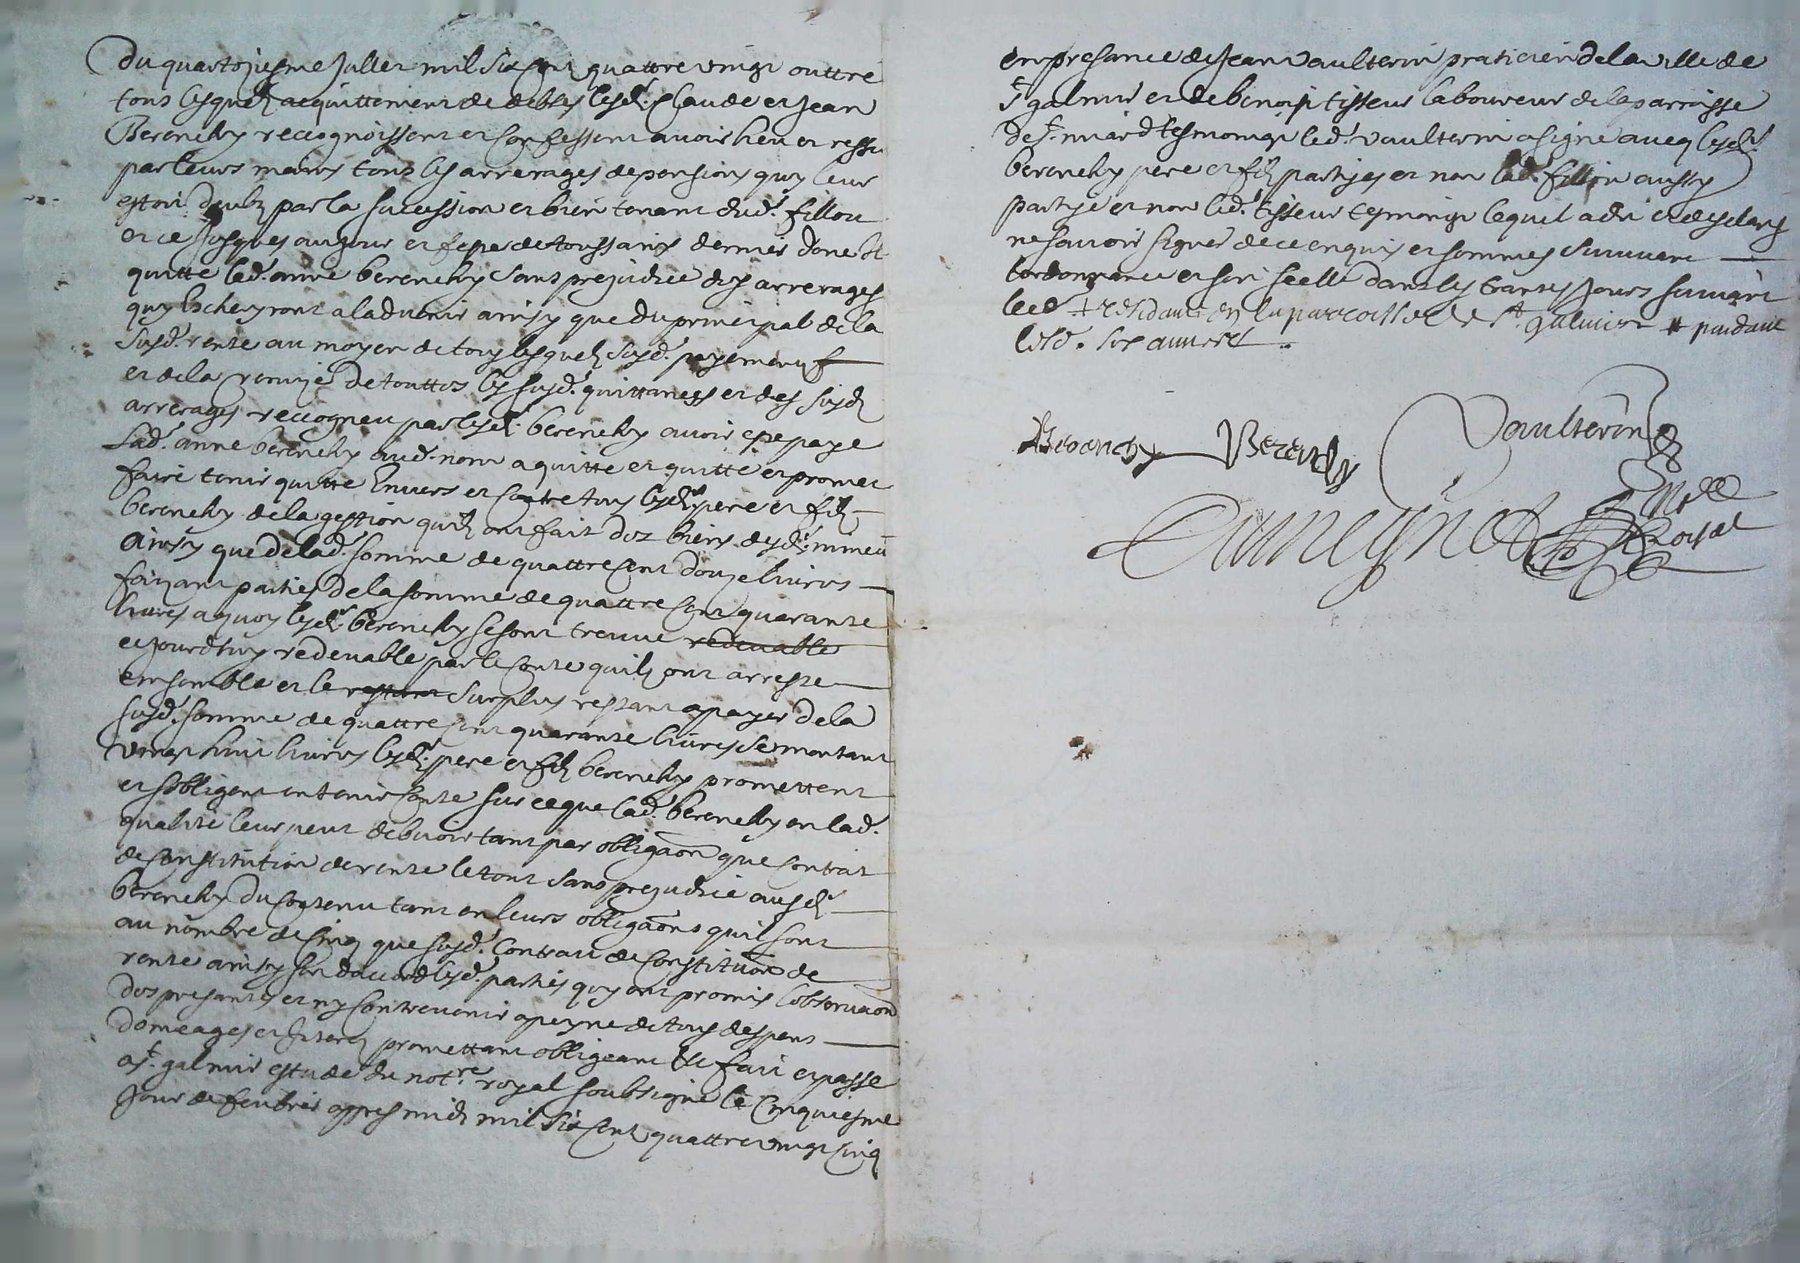 Du quatorziesme Jullet mil six cent quattre vingt outtre
tous lesquelz acquittement de debtes lesd. Claude et Jean
Berenchy recognoissent et confessent avoir heu et ressu
par leurs mains tous les arrerages de pensions quy leur
estoit deubz par la sucession et bien tenant dud. fillon
et ce jusques au jour et feste de toussainctz dernier dont il
quitte lad. anne berenchy sans prejudice des arrerages
quy escheyront a ladvenir ainsy que du principal de la
susd. rente au moyen de tous lesquelz susd. payement
et de la remize de touttes les susd. quittances et des susd.
arrerages recogneu par lesd. berenchy avoir este paye
lad. anne berenchy aud. nom a quitte et quitte et promet
faire tenir quitte Envers et contre tous lesd. pere et filz
berenchy de la gestion quilz ont fait des biens desd. mineu
ainsy que de lad. somme de quattre cent douze livres
faizant parties de la somme de quattre cent quarante
livres a quoy lesd. berenchy se sont treuve redevable
ce jourdhuy redevable par le conte quilz ont arreste
ensemble et le restant surplus restant a payer de la
susd. somme de quattre cent quarante livres se montant
vingt huit livres lesd. pere et filz berenchy promettent
et sobligent en tenir conte sur ce que lad. berenchy en lad.
qualite leur peut debvoir tant par obligaon que contrat
de constitution de rente le tout sans prejudice ausd.
berenchy du contenu tant en leurs obligaons quil sont
au nombre de cinq que susd. contrat de constitution de
rente ainsy sont daccord lesd. parties quy ont promis lobservaon
des presantes et ny contrevenir a peyne de tous despens
domeages et Interestz promettant obligeant &c fait et passe
a St. galmier estude du notre. royal soubsigne le cinquiesme
Jour de febvrier appres midi mil six cent quattre vingt cinq
en presance de Jean vaulterin praticien de la ville de
St galmier et de benoist tisseur laboureur de la parroisse
de St. miard tesmoings led. vaulterin a signe avec lesd.
berenchy pere et filz partyes et non lad. fillon aussy
partye et non led. tisseur tesmoings lequel a dit et desclare
ne savoir signer de ce enquis et sommes suivant
lordonnance et soit scelle dans les trantes jours suivant
led + residant en la parroisse de St. galmier # pandant
lesd. six annees
Berenchy Berenchy Vaulterin
Not. Royal